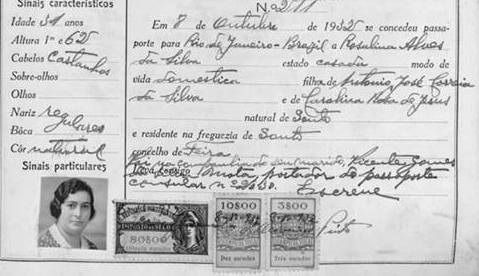 Sinais característicos
Idade 31 anos
Altura 1m 625
Cabelos Castanhos
Sobre-olhos
Olhos
Nariz regulares
Bôca
Côr natural
Sinais particulares
N.º 211
Em 8 de Outubro de 1935 se concedeu passa-
porte para Rio de Janeiro-Brazil a Rosalina Alves
da Silva estado casada modo de
vida domestica filha de Antonio José Correia
da Silva e de Carolina Rosa de Jesus
natural de Souto
e residente na freguezia de Souto
concelho de Feira
Leva consigo
Vai na companhia de seu marido, Vicente Gomes
da Mota, portador do passaporte
consular n.º
Escreve
80$00
10$00
Dez escudos
3$00
Três escudos
Pinto